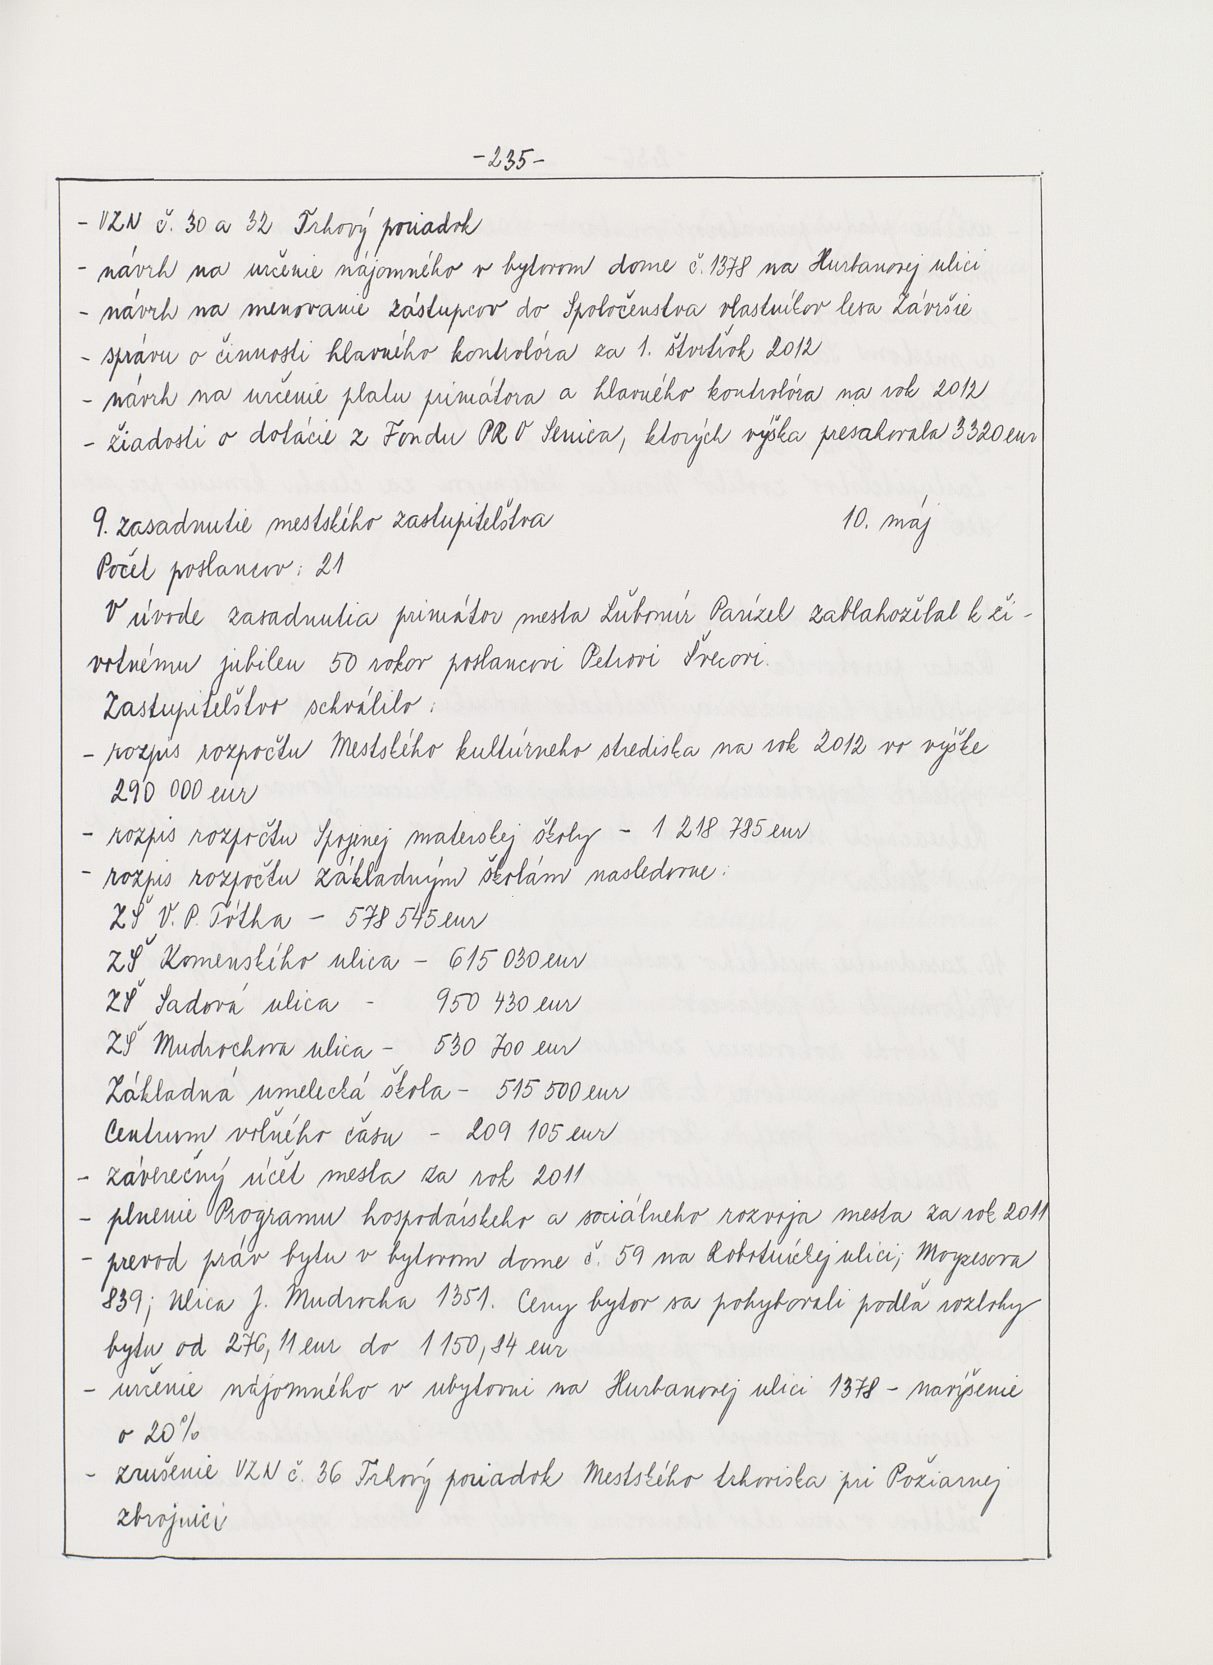 -235-
- VZN č. 30 a 32 Trhový poriadok
- návrh na určenie nájomného v bytovom dome č. 1378 na Hurbanovej ulici
- návrh na menovanie zástupcov do Spoločenstva vlastníkov lesa Závršie
- správu o činnosti hlavného kontrolóra za 1. štvrťrok 2012
- návrh na určenie platu primátora a hlavného kontrolóra na rok 2012
- žiadosti o dotácie z Fondu PRO Senica, ktorých výška presahovala 3320 eur
9. zasadnutie mestského zastupiteľstva 10. máj
Počet poslancov: 21
V úvode zasadnutia primátor mesta Ľubomír Parízek zablahoželal k ži-
votnému jubileu 50 rokov poslancovi Petrovi Švecovi.
Zastupiteľstvo schválilo:
- rozpis rozpočtu Mestského kultúrneho strediska na rok 2012 vo výške
290 000 eur
- rozpis rozpočtu Spojenej materskej školy - 1 218 785 eur
- rozpis rozpočtu základným školám nasledovne:
ZŠ V. P. Tótha - 578 545 eur
ZŠ Komenského ulica - 615 030 eur
ZŠ Sadová ulica - 950 430 eur
ZŠ Mudrochova ulica - 530 700 eur
Základná umelecká škola - 515 500 eur
Centrum voľného času - 209 105 eur
- záverečný účet mesta za rok 2011
- plnenie Programu hospodárskeho a sociálneho rozvoja mesta za rok 2011
- prevod práv bytu v bytovom dome č. 59 na Robotníckej ulici; Moyzesova
839; Ulica J. Mudrocha 1351. Ceny bytov sa pohybovali podľa rozlohy
bytu od 276,11 eur do 1 150,84 eur
- určenie nájomného v ubytovni na Hurbanovej ulici 1378 - navýšenie
o 20%
- zrušenie VZN č. 36 Trhový poriadok Mestského trhoviska pri Požiarnej
zbrojnici